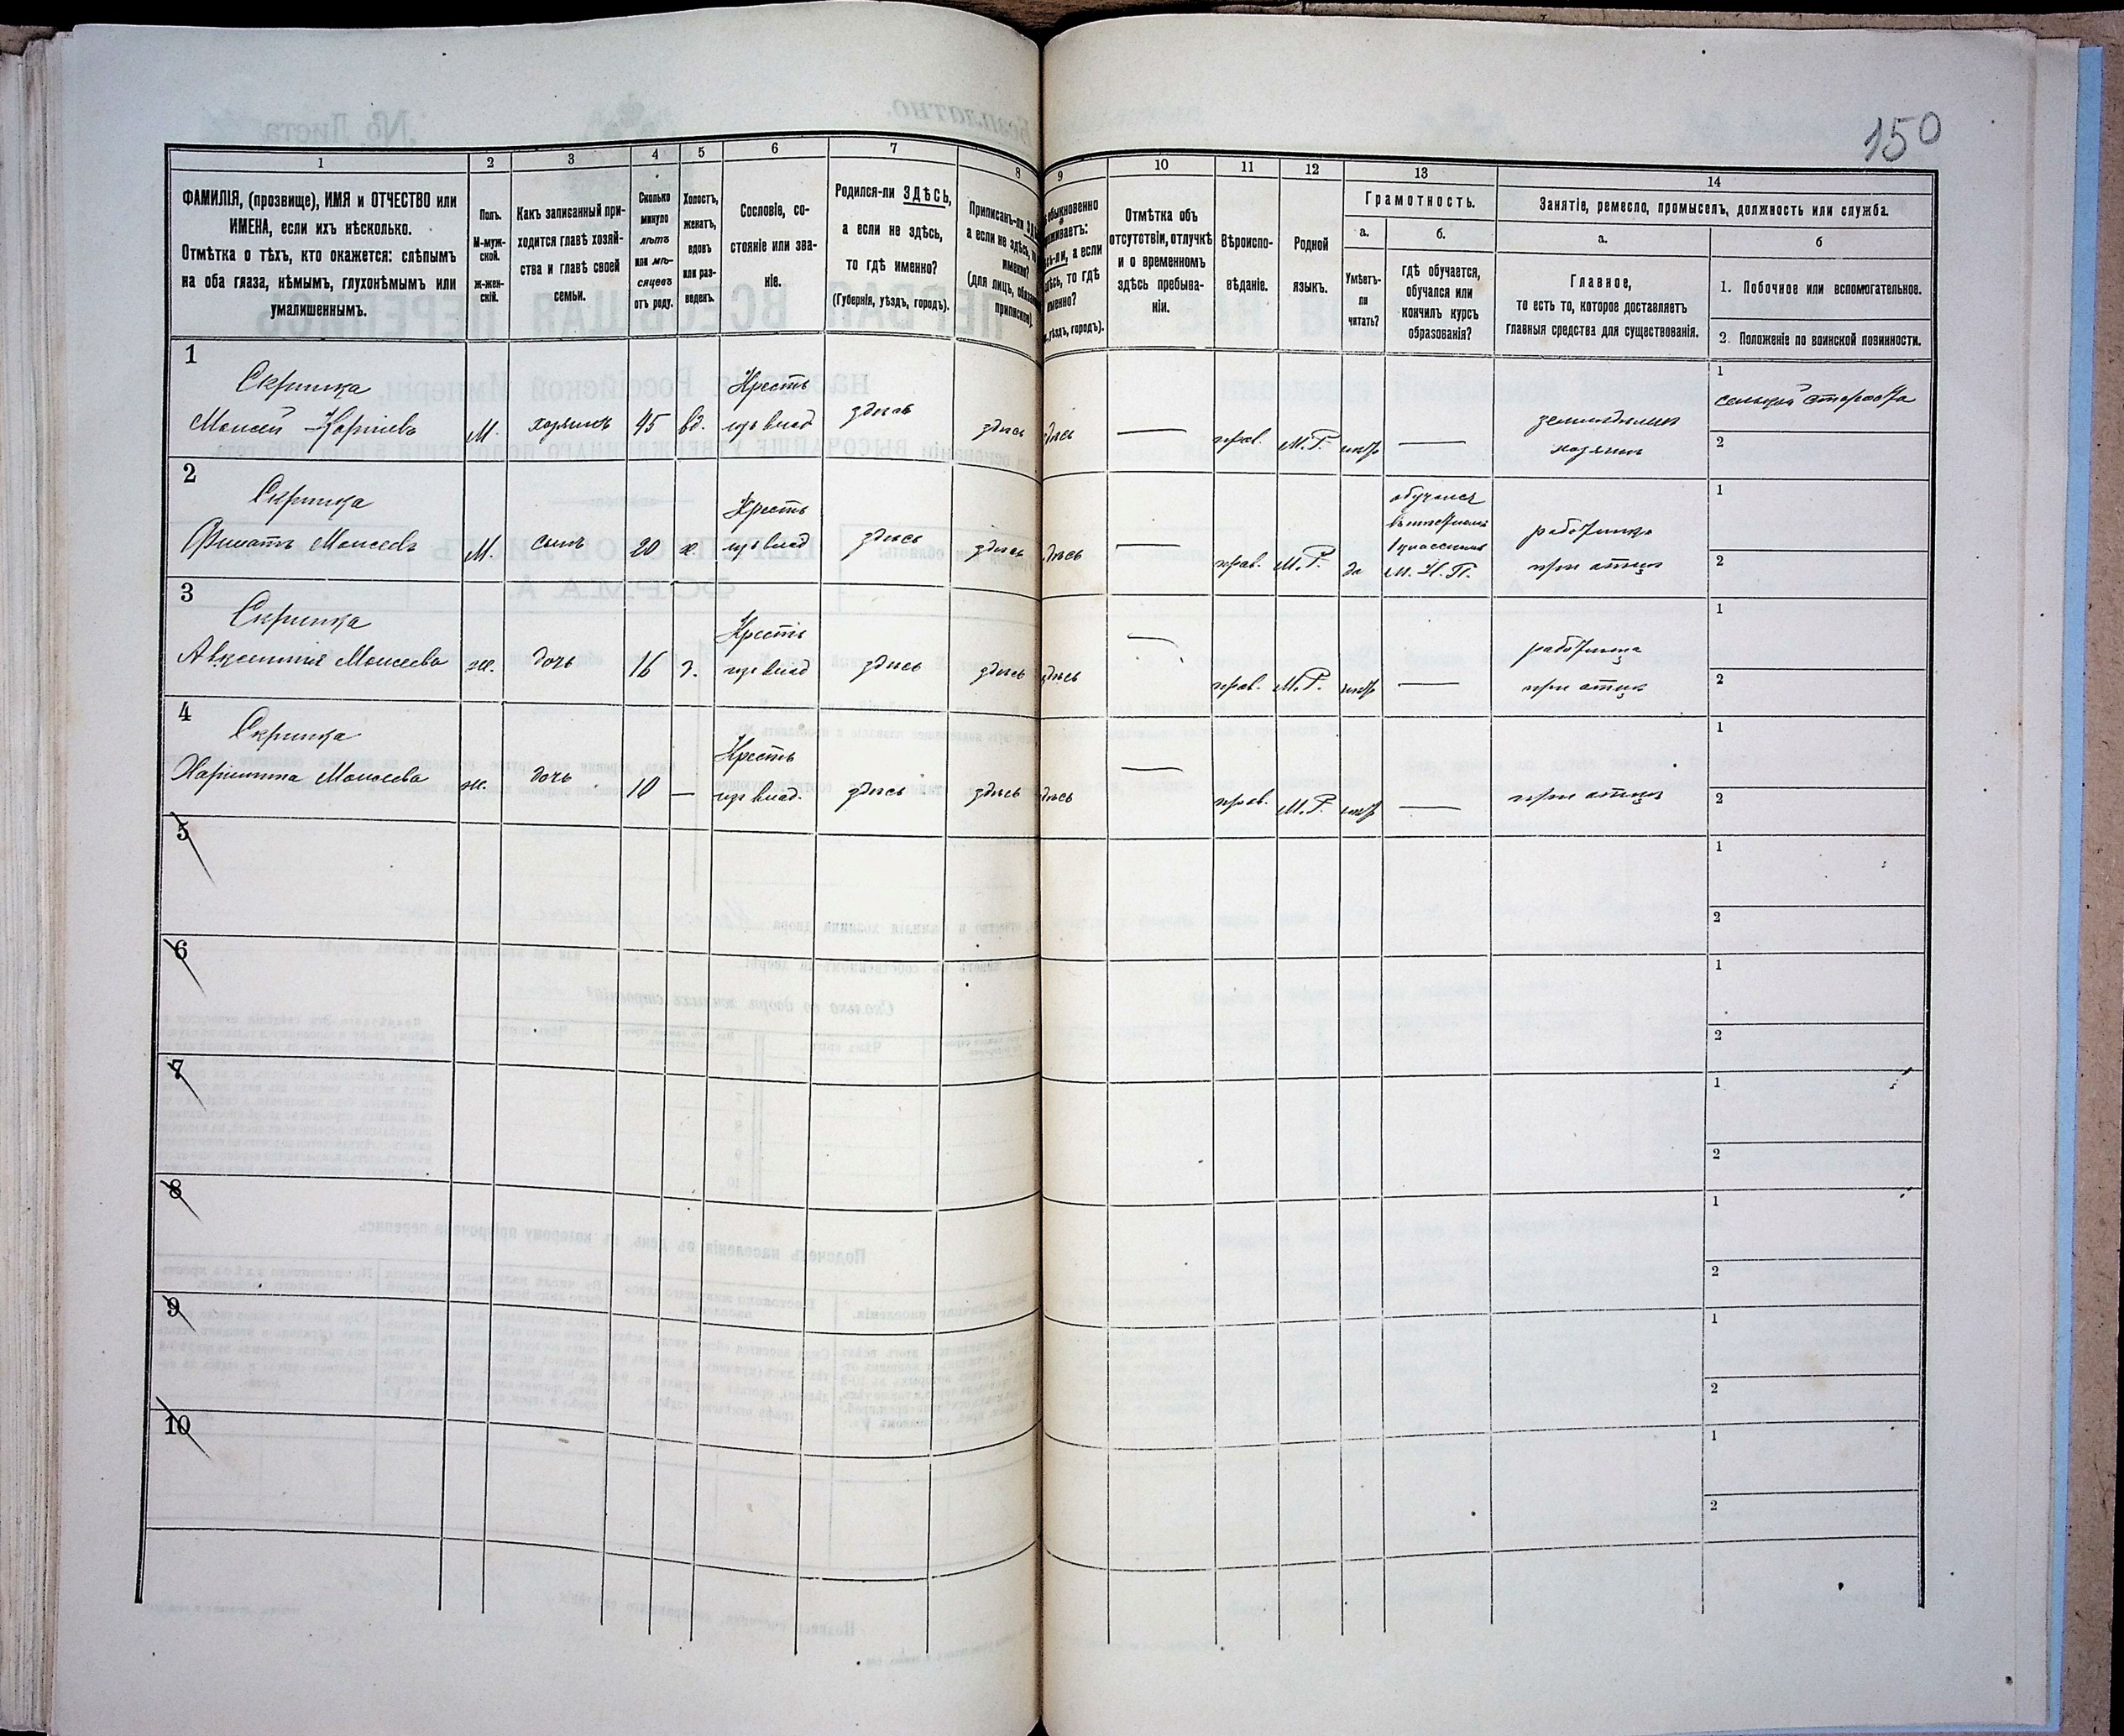 150
1
2
3
4
5
6
7
8
9
10
11
12
13
14
ФАМИЛІЯ, (прозвище), ИМЯ и ОТЧЕСТВО или
ИМЕНА, если ихъ нѣсколько.
Отмѣтка о тѣхъ, кто окажется: слѣпымъ
на оба глаза, нѣмымъ, глухонѣмымъ или
умалишеннымъ.
Полъ.
М-муж-
ской.
Ж-жен-
скій.
Какъ записанный при-
ходится главѣ хозяй-
ства и главѣ своей
семьи.
Сколько
минуло
лѣтъ
или мѣ-
сяцевъ
отъ роду.
Холостъ,
женатъ,
вдовъ
или раз-
веденъ.
Сословіе, со-
стояніе или зва-
ніе.
Родился-ли ЗДѢСЬ,
а если не здѣсь,
то гдѣ именно?
(Губернія, уѣздъ, городъ).
Приписанъ-ли
а если не здѣсь,
(для лицъ,
обыкновенно
а если
то гдѣ
уѣздъ, городъ).
Отмѣтка объ
отсутствіи, отлучкѣ
и о временномъ
здѣсь пребыва-
ніи.
Вѣроиспо-
вѣданіе.
Родной
языкъ.
Грамотность.
а.
б.
Умѣетъ-
ли
читать?
гдѣ обучается,
обучался или
кончилъ курсъ
образованія?
Занятіе, ремесло, промыселъ, должность или служба.
а.
б
Главное,
то есть то, которое доставляетъ
главныя средства для существованія.
1. Побочное или вспомогательное.
2. Положеніе по воинской повинности.
1
Скрипка
Моисей Корніевъ
М.
хозяинъ
45
вд.
Крестъ
изъ влад
здѣсь
здѣсь
прав.
М.Р.
нѣтъ
земледѣлец
хозяинъ
1
сельскій староста
2
2
Скрипка
Филатъ Моисеевъ
М.
сынъ
20
х.
Крестъ
изъ влад
здѣсь
здѣсь
прав.
М.Р.
да
обучался
1 классномъ
М. Н. П.
работника
при отцѣ
1
2
3
Скрипка
Авксентія Моисеева
ж.
дочь
16
д.
Крестъ
изъ влад
здѣсь
здѣсь
прав.
М.Р.
нѣтъ
работница
при отцѣ
1
2
4
Скрипка
Харитина Моисеева
ж.
дочь
10
Крестъ
изъ влад.
здѣсь
здѣсь
прав.
М.Р.
нѣтъ
при отцѣ
1
2
5
1
2
6
1
2
7
1
2
8
1
2
9
1
2
10
1
2